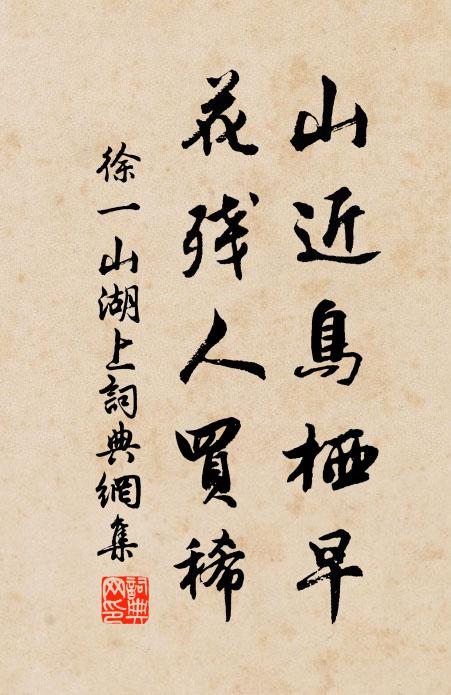 山近鳥栖早
花残人買稀
徐一山湖上詞典網集
詞典網印